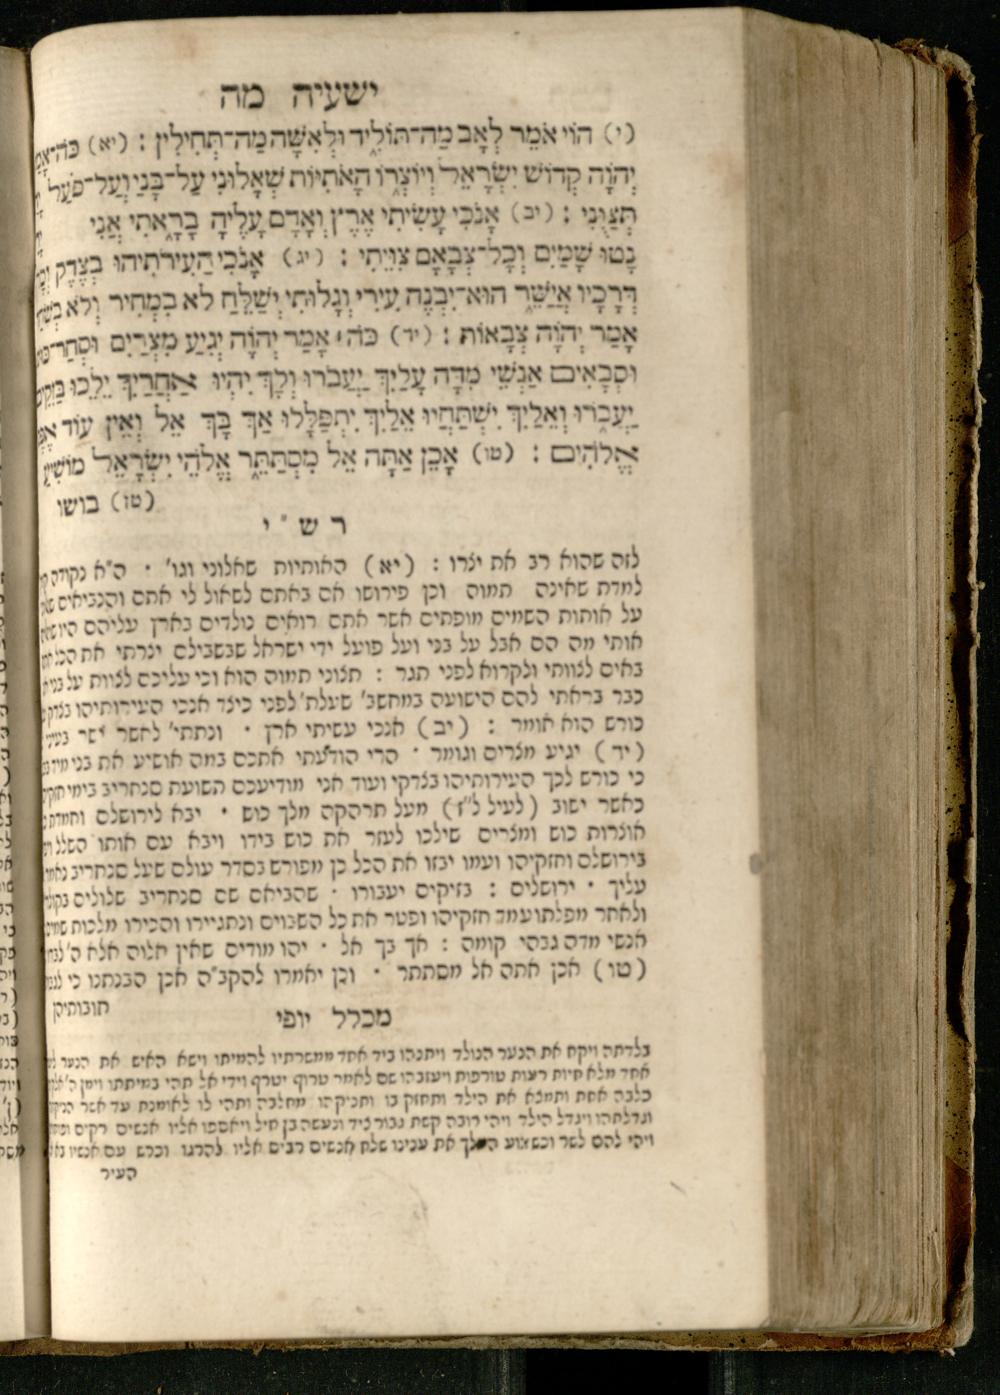 ישעיה מה
(י) הוֹי אֹמֵר לְאָב מַה־תּוֹלִיד וּלְאִשָּׁה מַה־תְּחִילִין : (יא) כֹּה־אָמַר
יְהוָֹה קְדוֹשׁ יִשְׂרָאֵל וְיוֹצְרוֹ הָאֹתִיּוֹת שְׁאָלוּנִי עַל־בָּנַי וְעַל־פֹּעַל
תְּצַוֻּנִי : (יב) אָנֹכִי עָשִׂיתִי אֶרֶץ וְאָדָם עָלֶיהָ בָרָאתִי אֲנִי
נָטוּ שָׁמַיִם וְכָל־צְבָאָם צִוֵּיתִי : (יג) אָנֹכִי הַעִירֹתִיהוּ בְצֶדֶק
דְּרָכָיו אֲיַשֵּׁר הוּא־יִבְנֶה עִירִי וְגָלוּתִי יְשַׁלֵּחַ לֹא בִמְחִיר וְלֹא
אָמַר יְהוָֹה צְבָאוֹת : (יד) כֹּה אָמַר יְהוָֹה יְגִיעַ מִצְרַיִם וּסְחַר־
וּסְבָאִים אַנְשֵׁי מִדָּה עָלַיִךְ יַעֲבֹרוּ וְלָךְ יִהְיוּ אַחֲרַיִךְ יֵלֵכוּ בַּזִּקִּים
יַעֲבֹרוּ וְאֵלַיִךְ יִשְׁתַּחֲווּ אֵלַיִךְ יִתְפַּלָּלוּ אַךְ בָּךְ אֵל וְאֵין עוֹד
אֱלֹהִים : (טו) אָכֵן אַתָּה אֵל מִסְתַּתֵּר אֱלֹהֵי יִשְׂרָאֵל מוֹשִׁיעַ
(טז) בושו
רש"י
לזה שהוא רב את יצרו : (יא) האותיות שאלוני וגו' · ה"א נקודה
למדת שאינה תמוה וכן פירושו אם באתם לשאול לי אתם והנביאים
על אותות השמים מופתים אשר אתם רואים נולדים בארץ עליהם היו
אותי מה הם אבל על בני ועל פועל ידי ישראל שבשבילם יצרתי את הכל
באים לצוותי ולקרוא לפני תגר : תצוני תמוה הוא וכי עליכם לצוות על
כבר בראתי להם הישועה במחשב' שעלת' לפני כיצד אנכי העירותיהו
כורש הוא אומר : (יב) אנכי עשיתי ארץ · ונתתי' לאשר ישר
(יד) יגיע מצרים וגומר · הרי הודעתי אתכם במה אושיע את בני
כי כורש לכך העירותיהו בצדקי ועוד אני מודיעכם תשועת סנחריב בימי
כאשר ישוב (לעיל ל"ז) מעל תרהקה מלך כוש · יבא לירושלם וחמדת
אוצרות כוש ומצרים שילכו לעזר את כוש בידו ויבא עם אותו השלל
בירושלם וחזקיהו ועמו יבזו את הכל כן מפורש בסדר עולם שעל סנחריב
עליך · ירושלים : בזיקים יעבורו · שהביאם שם סנחריב שלולים
ולאחר מפלתו עמד חזקיהו ופטר את כל השבוים ונתגיירו והכירו מלכות
אנשי מדה גבהי קומה : אך בך אל · יהו מודים שאין אלוה אלא ה'
(טו) אכן אתה אל מסתתר · וכן יאמרו להקב"ה אכן הבנתנו כי
חובותיהן
מכלל יופי
בלדתה ויקח את הנער הנולד ויתנהו ביד אחד ממשרתיו להמיתו וישא האיש את הנער
אחד מלא חיות רעות טורפות ויעזבהו שם לאמר טרוף יטרף וידי אל תהי במיתתו
כלבה אחת ותמצא את הילד ותחזק בו ותניקהו מחלבה ותהי לו לאומנת עד אשר
ותגדלהו ויגדל הילד ויהי רובה קשת גבור ציד ונעשה בן חיל ויאספו אליו אנשים רקים
ויהי להם לשר וכשמוע המלך את ענינו שלח אנשים רבים אליו להרגו וכרש עם אנשיו
העיר